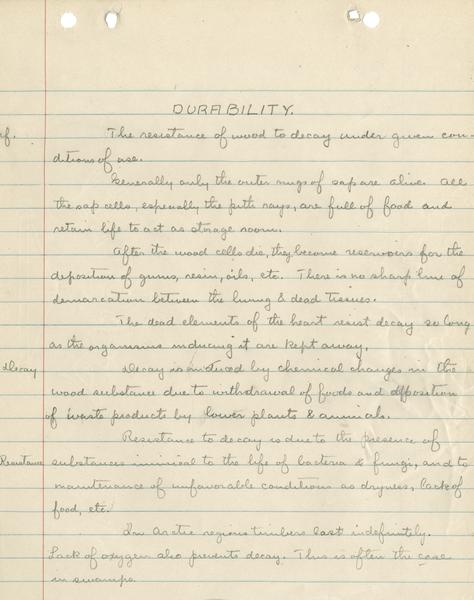 DURABILITY.
ef. The resistance of wood to decay under given con-
ditions of use.
Generally only the outer rings of sap are alive. All
the sap cells, especially the pith rays, are full of food and
retain life to act as storage room.
After the wood cells die, they become reservoirs for the
deposition of gums, resin, oils, etc. There is no sharp line of
demarcation between the living & dead tissues.
The dead elements of the heart resist decay so long
as the organisms inducing it are kept away.
Decay Decay is induced by chemical changes in the
wood substance due to withdrawal of foods and deposition
of waste products by lower plants & animals.
Resistance to decay is due to the presence of
Resistance substances inimical to the life of bacteria & fungi, and to
maintenance of unfavorable conditions as dryness, lack of
food, etc.
In Arctic regions timbers last indefinitely.
Lack of oxygen also prevents decay. This is often the case
in swamps.